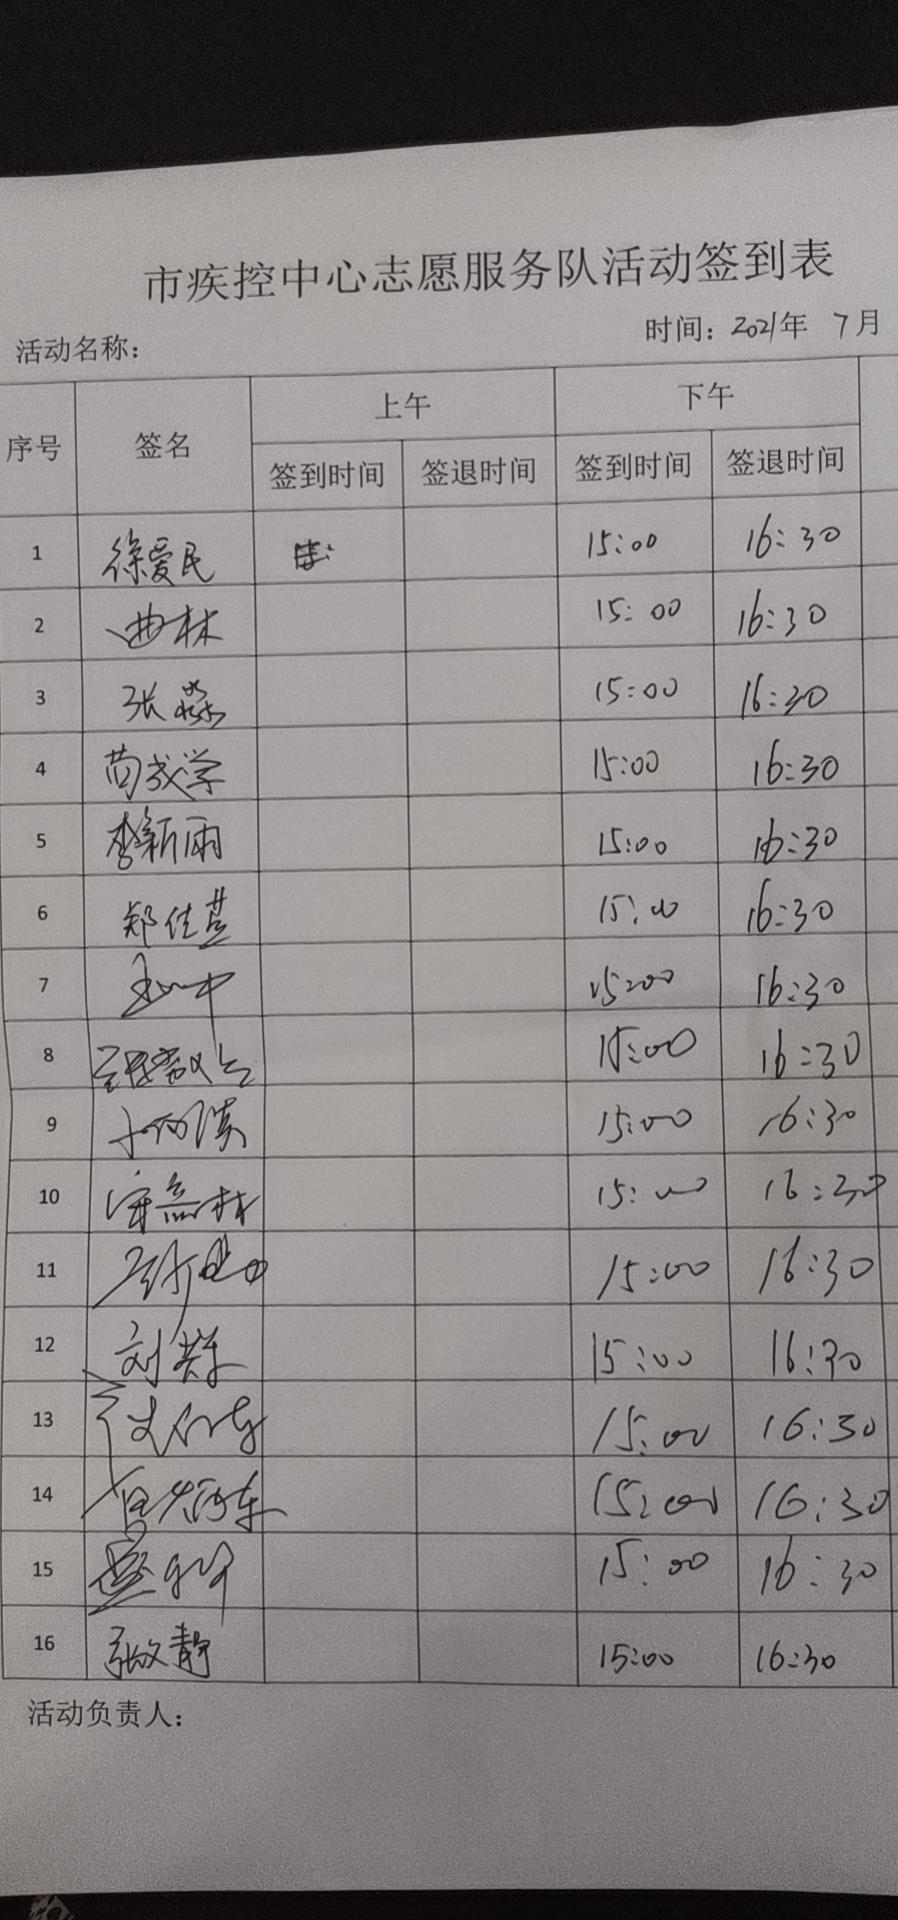 市疾控中心志愿服务队活动签到表
活动名称： 时间：2021年 7月
序号 签名 上午 下午
签到时间 签退时间 签到时间 签退时间
1 徐爱民 15:00 16:30
2 曲林 15:00 16:30
3 张淼 15:00 16:30
4 苟成学 15:00 16:30
5 李新雨 15:00 16:30
6 郑佳慧 15:00 16:30
7 15:00 16:30
8 15:00 16:30
9 15:00 16:30
10 15:00 16:30
11 15:00 16:30
12 刘 15:00 16:30
13 15:00 16:30
14 15:00 16:30
15 15:00 16:30
16 张文静 15:00 16:30
活动负责人：